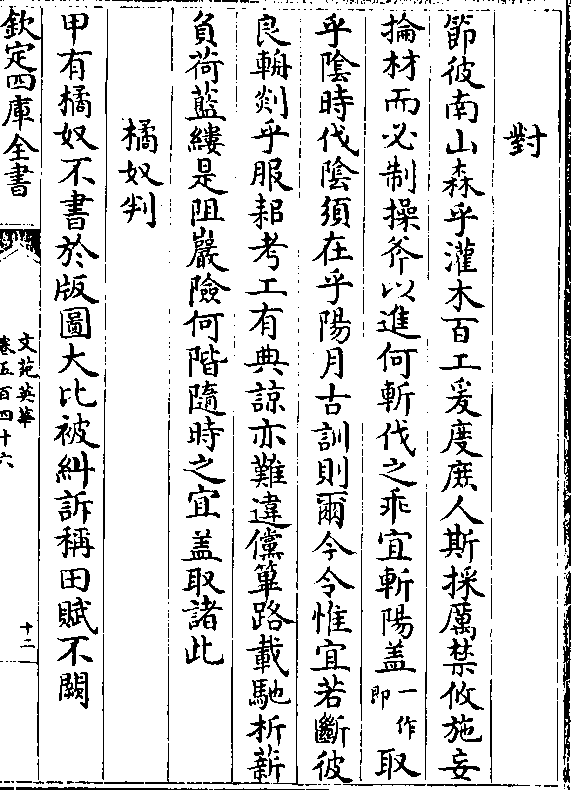 對
節彼南山森乎灌木百工爰度庶人斯採厲禁攸施妄
掄材而必制操斧以進何斬伐之乖宜斬陽盖一作即取
乎陰時伐陰須在乎陽月古訓則爾今令惟宜若斷彼
良輈剡乎服耜考工有典諒亦難違儻篳路載馳析薪
負荷藍縷是阻巖險何階隨時之宜盖取諸此
橘奴判
甲有橘奴不書於版圖大比被糾訴稱田賦不闕
欽定四庫全書
文苑英華
卷五百四十六
十二